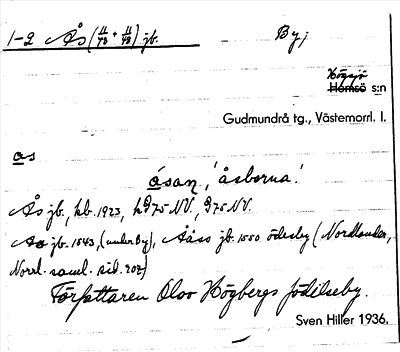 1-2 Ås (11/48 + 11/48) jb. By;
Högsjö
Hemsö s:n
Gudmundrå tg., Västernorrl. l.
os
åsan, 'åsborna'.
Ås jb., kb. 1923, k 975 NV, 975 NV.
Aas jb. 1543, (under By), Ååss jb. 1550 ödesby (Nordlander,
Norrl. saml. sid. 202)
Författaren Olov Högbergs födelseby.
Sven Hiller 1936.